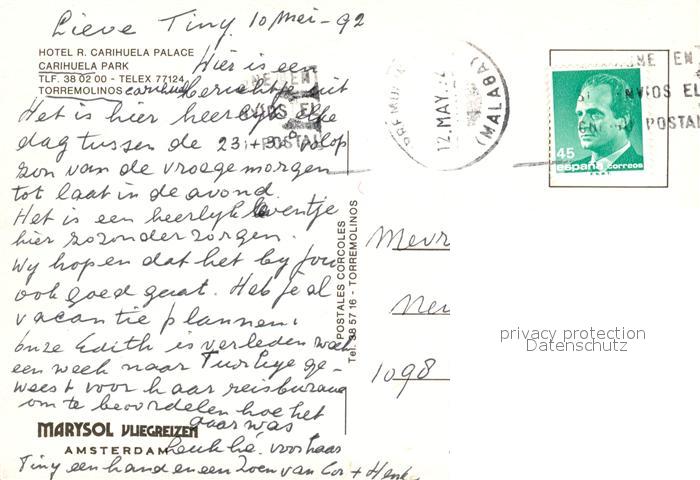 Lieve Tiny. 10 Mei - 92
HOTEL R. CARIHUELA PALACE
CARIHUELA PARK
TLF. 38 02 00 - TELEX 77124
TORREMOLINOS
Hier is een
berichtje uit
Het is hier heerlijk elke
dag tussen de 23 + 30° volop
zon van de vroege morgen
tot laat in de avond
Het is een heerlijk leventje
hier zo zonder zorgen.
Wy hopen dat het by jou
ook goed gaat. Heb je al
vacantie plannen.
Onze Edith is verleden week
een week naar Turkye ge-
weest voor haar reisbureau
om te beoordelen hoe het
daar was
MARYSOL VLIEGREIZEN
AMSTERDAM
leuk hé. voor haar
Tiny een hand en een Zoen van Cor + Henk
POSTALES CORCOLES
Tel. 38 57 16 - TORREMOLINOS
12.MAY.
(MALAGA)
ENVIOS EL
POSTAL
45
españa correos
Mevr
1098
privacy protection
Datenschutz